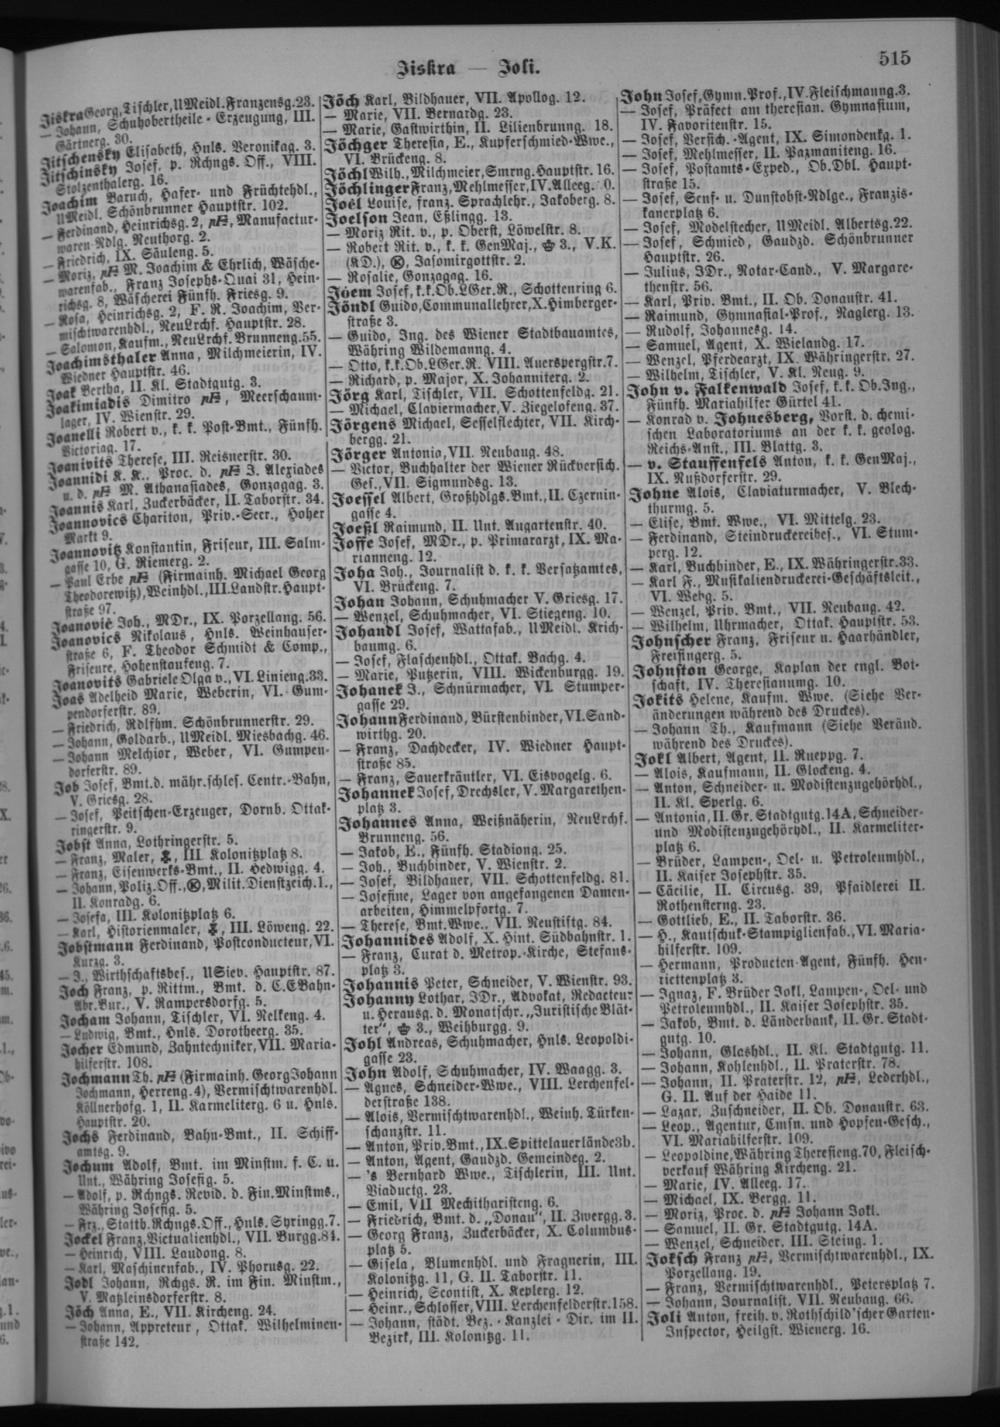 515
Jiskra — Joli.
Jiskra Georg, Tischler, UMeidl. Franzensg. 23.
— Johann, Schuhobertheile-Erzeugung, III.
Gärtnerg. 30.
Jitschensky Elisabeth, Huls. Veronikag. 3.
Jitschinsky Josef, p. Rchngs. Off., VIII.
Stolzenthalerg. 16.
Joachim Baruch, Hafer- und Früchtehdl.,
UMeidl. Schönbrunner Hauptstr. 102.
— Ferdinand, Heinrichsg. 2, Manufactur-
waren-Ndlg. Neuthorg. 2.
— Friedrich, IX. Säuleng. 5.
— Moriz, M. Joachim & Ehrlich, Wäsche-
warenfab., Franz Josephs-Quai 31, Hein-
richsg. 8, Wäscherei Fünfh. Friesg. 9.
— Rosa, Heinrichsg. 2, F. R. Joachim, Ver-
mischtwarenhdl., NeuLrchf. Hauptstr. 28.
— Salomon, Kaufm., NeuLrchf. Brunneng. 55.
Joachimsthaler Anna, Milchmeierin, IV.
Wiedner Hauptstr. 46.
Joak Bertha, II. Kl. Stadtgutg. 3.
Joakimiadis Dimitro, Meerschaum-
lager, IV. Wienstr. 29.
Joanelli Robert v., k. k. Post-Bmt., Fünfh.
Victoriag. 17.
Joanivits Therese, III. Reisnerstr. 30.
Joannidi K. K., Proc. d. J. Alexiades
u. d. M. Athanasiades, Gonzagag. 3.
Joannis Karl, Zuckerbäcker, II. Taborstr. 34.
Joannovics Chariton, Priv.-Secr., Hoher
Markt 9.
Joannovitz Konstantin, Friseur, III. Salm-
gasse 10, G. Riemerg. 2.
— Paul Erbe (Firmainh. Michael Georg
Theodorewitz), Weinhdl., III. Landstr. Haupt-
straße 97.
Joanovič Joh., MDr., IX. Porzellang. 56.
Joanovics Nikolaus, Huls. Weinhauser-
straße 6, F. Theodor Schmidt & Comp.,
Friseure, Hohenstaufeng. 7.
Joanovits Gabriele Olga v., VI. Linieng. 33.
Joas Adelheid Marie, Weberin, VI. Gum-
pendorferstr. 89.
— Friedrich, Rdlfhm. Schönbrunnerstr. 29.
— Johann, Goldarb., UMeidl. Miesbachg. 46.
— Johann Melchior, Weber, VI. Gumpen-
dorferstr. 89.
Job Josef, Bmt. d. mähr. schles. Centr.-Bahn,
V. Griesg. 28.
— Josef, Peitschen-Erzeuger, Dornb. Ottak-
ringerstr. 9.
Jobst Anna, Lothringerstr. 5.
— Franz, Maler, III. Kolonitzplatz 8.
— Franz, Eisenwerks-Bmt., II. Hedwigg. 4.
— Johann, Poliz. Off., Milit. Dienstzeich. 1.,
II. Konradg. 6.
— Josefa, III. Kolonitzplatz 6.
— Karl, Historienmaler, III. Löweng. 22.
Jobstmann Ferdinand, Postconducteur, VI.
Kurzg. 3.
— J., Wirthschaftsbes., USiev. Hauptstr. 87.
Joch Franz, p. Rittm., Bmt. d. C.E.Bahn-
Abr. Bur., V. Rampersdorfg. 5.
Jocham Johann, Tischler, VI. Nelkeng. 4.
— Ludwig, Bmt., Huls. Dorotheerg. 35.
Jocher Edmund, Zahntechniker, VII. Maria-
hilferstr. 108.
Jochmann Th. (Firmainh. Georg Johann
Jochmann, Herreng. 4), Vermischtwarenhdl.
Köllnerhofg. 1, II. Karmeliterg. 6 u. Huls.
Hauptstr. 20.
Jochs Ferdinand, Bahn-Bmt., II. Schiff-
amtsg. 9.
Jochum Adolf, Bmt. im Minstm. f. C. u.
Unt., Währing Josefig. 5.
— Adolf, p. Rchngs. Revid. d. Fin. Minstms.,
Währing Josefig. 5.
— Frz., Statth. Rchngs. Off., Huls. Syringg. 7.
Jockel Franz, Victualienhdl., VII. Burgg. 84.
— Heinrich, VIII. Laudong. 8.
— Karl, Maschinenfab., IV. Phorusg. 22.
Jodl Johann, Rchgs. R. im Fin. Minstm.,
V. Matzleinsdorferstr. 8.
Jöch Anna, E., VII. Kircheng. 24.
— Johann, Appreteur, Ottak. Wilhelminen-
straße 142.
Jöch Karl, Bildhauer, VII. Apollog. 12.
— Marie, VII. Bernardg. 23.
— Marie, Gastwirthin, II. Lilienbrunng. 18.
Jöchger Theresia, E., Kupferschmied-Wwe.,
VI. Brückeng. 8.
Jöchl Wilh., Milchmeier, Smrng. Hauptstr. 16.
Jöchlinger Franz, Mehlmesser, IV. Alleeg.
Joël Louise, franz. Sprachlehr., Jakoberg. 8.
Joelson Jean, Eßlingg. 13.
— Moriz Rit. v., p. Oberst, Löwelstr. 8.
— Robert Rit. v., k. k. GenMaj., 3., V.K.
(KD.), Jasomirgottstr. 2.
— Rosalie, Gonzagag. 16.
Jöem Josef, k. k. Ob.LGer.R., Schottenring 6.
Jöndl Guido, Communallehrer, X. Himberger-
straße 3.
— Guido, Ing. des Wiener Stadtbauamtes,
Währing Wildemanng. 4.
— Otto, k. k. Ob.LGer.R. VIII. Auerspergstr. 7.
— Richard, p. Major, X. Johanniterg. 2.
Jörg Karl, Tischler, VII. Schottenfeldg. 21.
— Michael, Claviermacher, V. Ziegelofeng. 37.
Jörgens Michael, Sesselflechter, VII. Kirch-
bergg. 21.
Jörger Antonia, VII. Neubaug. 48.
— Victor, Buchhalter der Wiener Rückversich.
Ges., VII. Sigmundsg. 13.
Joessel Albert, Großhdlgs. Bmt., II. Czernin-
gasse 4.
Joeßl Raimund, II. Unt. Augartenstr. 40.
Joffe Josef, MDr., p. Primararzt, IX. Ma-
rianneng. 12.
Joha Joh., Journalist d. k. k. Versatzamtes,
VI. Brückeng. 7.
Johan Johann, Schuhmacher V. Griesg. 17.
— Wenzel, Schuhmacher, VI. Stiegeng. 10.
Johandl Josef, Wattafab., UMeidl. Krich-
baumg. 6.
— Josef, Flaschenhdl., Ottak. Bachg. 4.
— Marie, Putzerin, VIII. Wickenburgg. 19.
Johanek J., Schnürmacher, VI. Stumper-
gasse 29.
Johann Ferdinand, Bürstenbinder, VI. Sand-
wirthg. 20.
— Franz, Dachdecker, IV. Wiedner Haupt-
straße 85.
— Franz, Sauerkräutler, VI. Eisvogelg. 6.
Johannek Josef, Drechsler, V. Margarethen-
platz 3.
Johannes Anna, Weißnäherin, NeuLrchf.
Brunneng. 56.
— Jakob, E., Fünfh. Stadiong. 25.
— Joh., Buchbinder, V. Wienstr. 2.
— Josef, Bildhauer, VII. Schottenfeldg. 81.
— Josefine, Lager von angefangenen Damen-
arbeiten, Himmelpfortg. 7.
— Therese, Bmt. Wwe., VII. Neustiftg. 84.
Johannides Adolf, X. Hint. Südbahnstr. 1.
— Franz, Curat d. Metrop.-Kirche, Stefans-
platz 3.
Johannis Peter, Schneider, V. Wienstr. 93.
Johanny Lothar, JDr., Advokat, Redacteur
u. Herausg. d. Monatschr. „Juristische Blät-
ter“, 3., Weihburgg. 9.
Johl Andreas, Schuhmacher, Huls. Leopoldi-
gasse 23.
John Adolf, Schuhmacher, IV. Waagg. 3.
— Agnes, Schneider-Wwe., VIII. Lerchenfel-
derstraße 138.
— Alois, Vermischtwarenhdl., Weinh. Türken-
schanzstr. 11.
— Anton, Priv. Bmt., IX. Spittelauerlände 3b.
— Anton, Agent, Gaudzd. Gemeindeg. 2.
— 's Bernhard Wwe., Tischlerin, III. Unt.
Viaductg. 23.
— Emil, VII Mechitharisteng. 6.
— Friedrich, Bmt. d. „Donau“, II. Zwergg. 3.
— Georg Franz, Zuckerbäcker, X. Columbus-
platz 5.
— Gisela, Blumenhdl. und Fragnerin, III.
Kolonitzg. 11, G. II. Taborstr. 11.
— Heinrich, Scontist, X. Keplerg. 12.
— Heinr., Schlosser, VIII. Lerchenfelderstr. 158.
— Johann, städt. Bez.-Kanzlei-Dir. im II.
Bezirk, III. Kolonitzg. 11.
John Josef, Gymn. Prof., IV. Fleischmanng. 3.
— Josef, Präfect am theresian. Gymnasium,
IV. Favoritenstr. 15.
— Josef, Versich.-Agent, IX. Simondenkg. 1.
— Josef, Mehlmesser, II. Pazmaniteng. 16.
— Josef, Postamts-Exped., Ob. Dbl. Haupt-
straße 15.
— Josef, Senf- u. Dunstobst-Ndlge., Franzis-
kanerplatz 6.
— Josef, Modelstecher, UMeidl. Albertsg. 22.
— Josef, Schmied, Gaudzd. Schönbrunner
Hauptstr. 26.
— Julius, JDr., Notar-Cand., V. Margare-
thenstr. 56.
— Karl, Priv. Bmt., II. Ob. Donaustr. 41.
— Raimund, Gymnasial-Prof., Naglerg. 13.
— Rudolf, Johannesg. 14.
— Samuel, Agent, X. Wielandg. 17.
— Wenzel, Pferdearzt, IX. Währingerstr. 27.
— Wilhelm, Tischler, V. Kl. Neug. 9.
John v. Falkenwald Josef, k. k. Ob. Ing.,
Fünfh. Mariahilfer Gürtel 41.
— Konrad v. Johnesberg, Vorst. d. chemi-
schen Laboratoriums an der k. k. geolog.
Reichs-Anst., III. Blattg. 3.
— v. Stauffenfels Anton, k. k. GenMaj.,
IX. Nußdorferstr. 29.
Johne Alois, Claviaturmacher, V. Blech-
thurmg. 5.
— Elise, Bmt. Wwe., VI. Mittelg. 23.
— Ferdinand, Steindruckereibes., VI. Stum-
perg. 12.
— Karl, Buchbinder, E., IX. Währingerstr. 33.
— Karl F., Musikaliendruckerei-Geschäftsleit.,
VI. Webg. 5.
— Wenzel, Priv. Bmt., VII. Neubaug. 42.
— Wilhelm, Uhrmacher, Ottak. Hauptstr. 53.
Johnscher Franz, Friseur u. Haarhändler,
Freisingerg. 5.
Johnston George, Kaplan der engl. Bot-
schaft, IV. Theresianumg. 10.
Jokits Helene, Kaufm. Wwe. (Siehe Ver-
änderungen während des Druckes).
— Johann Th., Kaufmann (Siehe Veränd.
während des Druckes).
Jokl Albert, Agent, II. Rueppg. 7.
— Alois, Kaufmann, II. Glockeng. 4.
— Anton, Schneider- u. Modistenzugehörhdl.,
II. Kl. Sperlg. 6.
— Antonia, II. Gr. Stadtgutg. 14A, Schneider-
und Modistenzugehörhdl., II. Karmeliter-
platz 6.
— Brüder, Lampen-, Oel- u. Petroleumhdl.,
II. Kaiser Josephstr. 35.
— Cäcilie, II. Circusg. 39, Pfaidlerei II.
Rothensterng. 23.
— Gottlieb, E., II. Taborstr. 36.
— H., Kautschuk-Stampiglienfab., VI. Maria-
hilferstr. 109.
— Hermann, Producten-Agent, Fünfh. Hen-
riettenplatz 3.
— Ignaz, F. Brüder Jokl, Lampen-, Oel- und
Petroleumhdl., II. Kaiser Josephstr. 35.
— Jakob, Bmt. d. Länderbank, II. Gr. Stadt-
gutg. 10.
— Johann, Glashdl., II. Kl. Stadtgutg. 11.
— Johann, Kohlenhdl., II. Praterstr. 78.
— Johann, II. Praterstr. 12, Lederhdl.,
G. II. Auf der Haide 11.
— Lazar, Zuschneider, II. Ob. Donaustr. 63.
— Leop., Agentur, Cmsn. und Hopfen-Gesch.,
VI. Mariahilferstr. 109.
— Leopoldine, Währing Theresieng. 70, Fleisch-
verkauf Währing Kircheng. 21.
— Marie, IV. Alleeg. 17.
— Michael, IX. Bergg. 11.
— Moriz, Proc. d. Johann Jokl.
— Samuel, II. Gr. Stadtgutg. 14A.
— Wenzel, Schneider, III. Steing. 1.
Joksch Franz, Vermischtwarenhdl., IX.
Porzellang. 19.
— Franz, Vermischtwarenhdl., Petersplatz 7.
— Johann, Journalist, VII. Neubaug. 66.
Joli Anton, freih. v. Rothschild'scher Garten-
Inspector, Heilgst. Wienerg. 16.